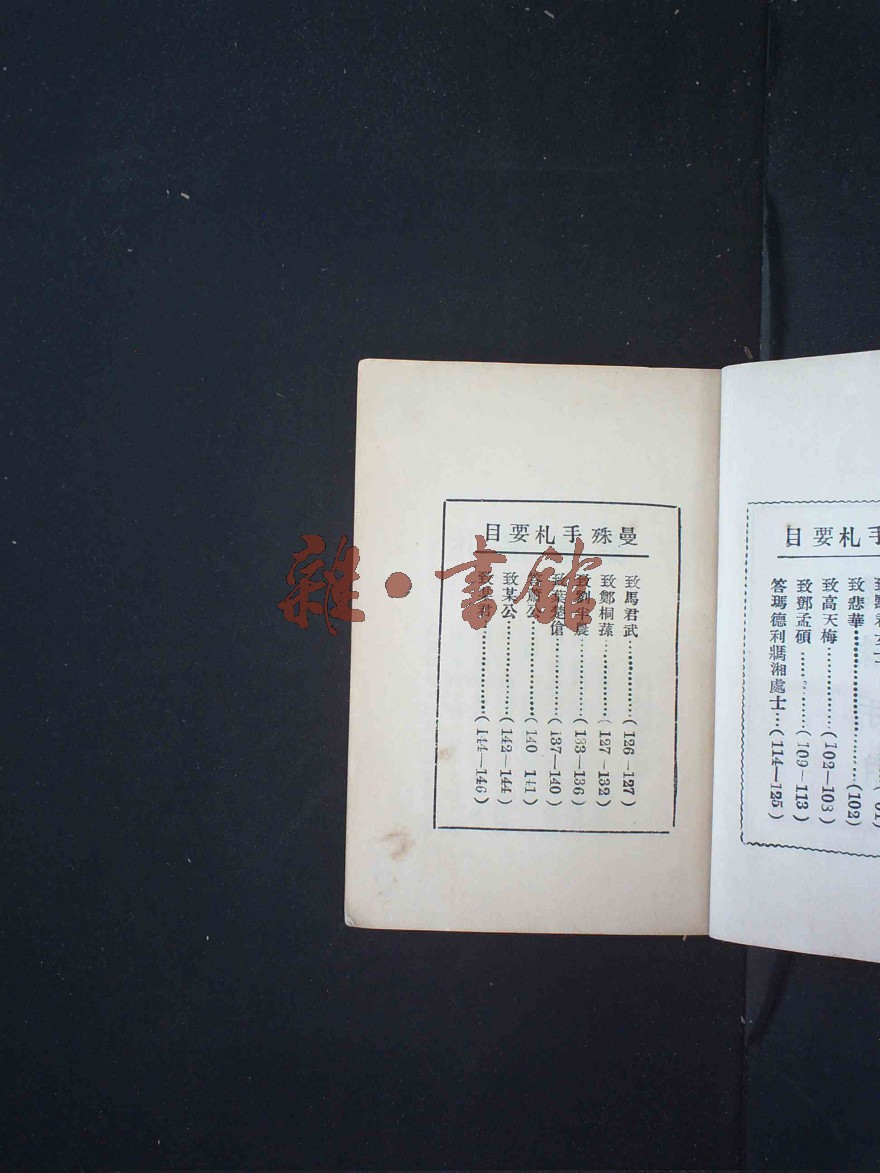 手札要目
致悲華……………(102)
致高天梅……………(102—103)
致鄧孟碩……………(109—113)
答瑪德利瑪湘處士…(114—125)
曼殊手札要目
致馬君武……………(126—127)
致鄭桐蓀……………(127—132)
致劉半農……………(133—136)
致葉楚傖……………(137—140)
答蕭公……………(140—141)
致某公……………(142—144)
致某君……………(144—146)
雜·書館